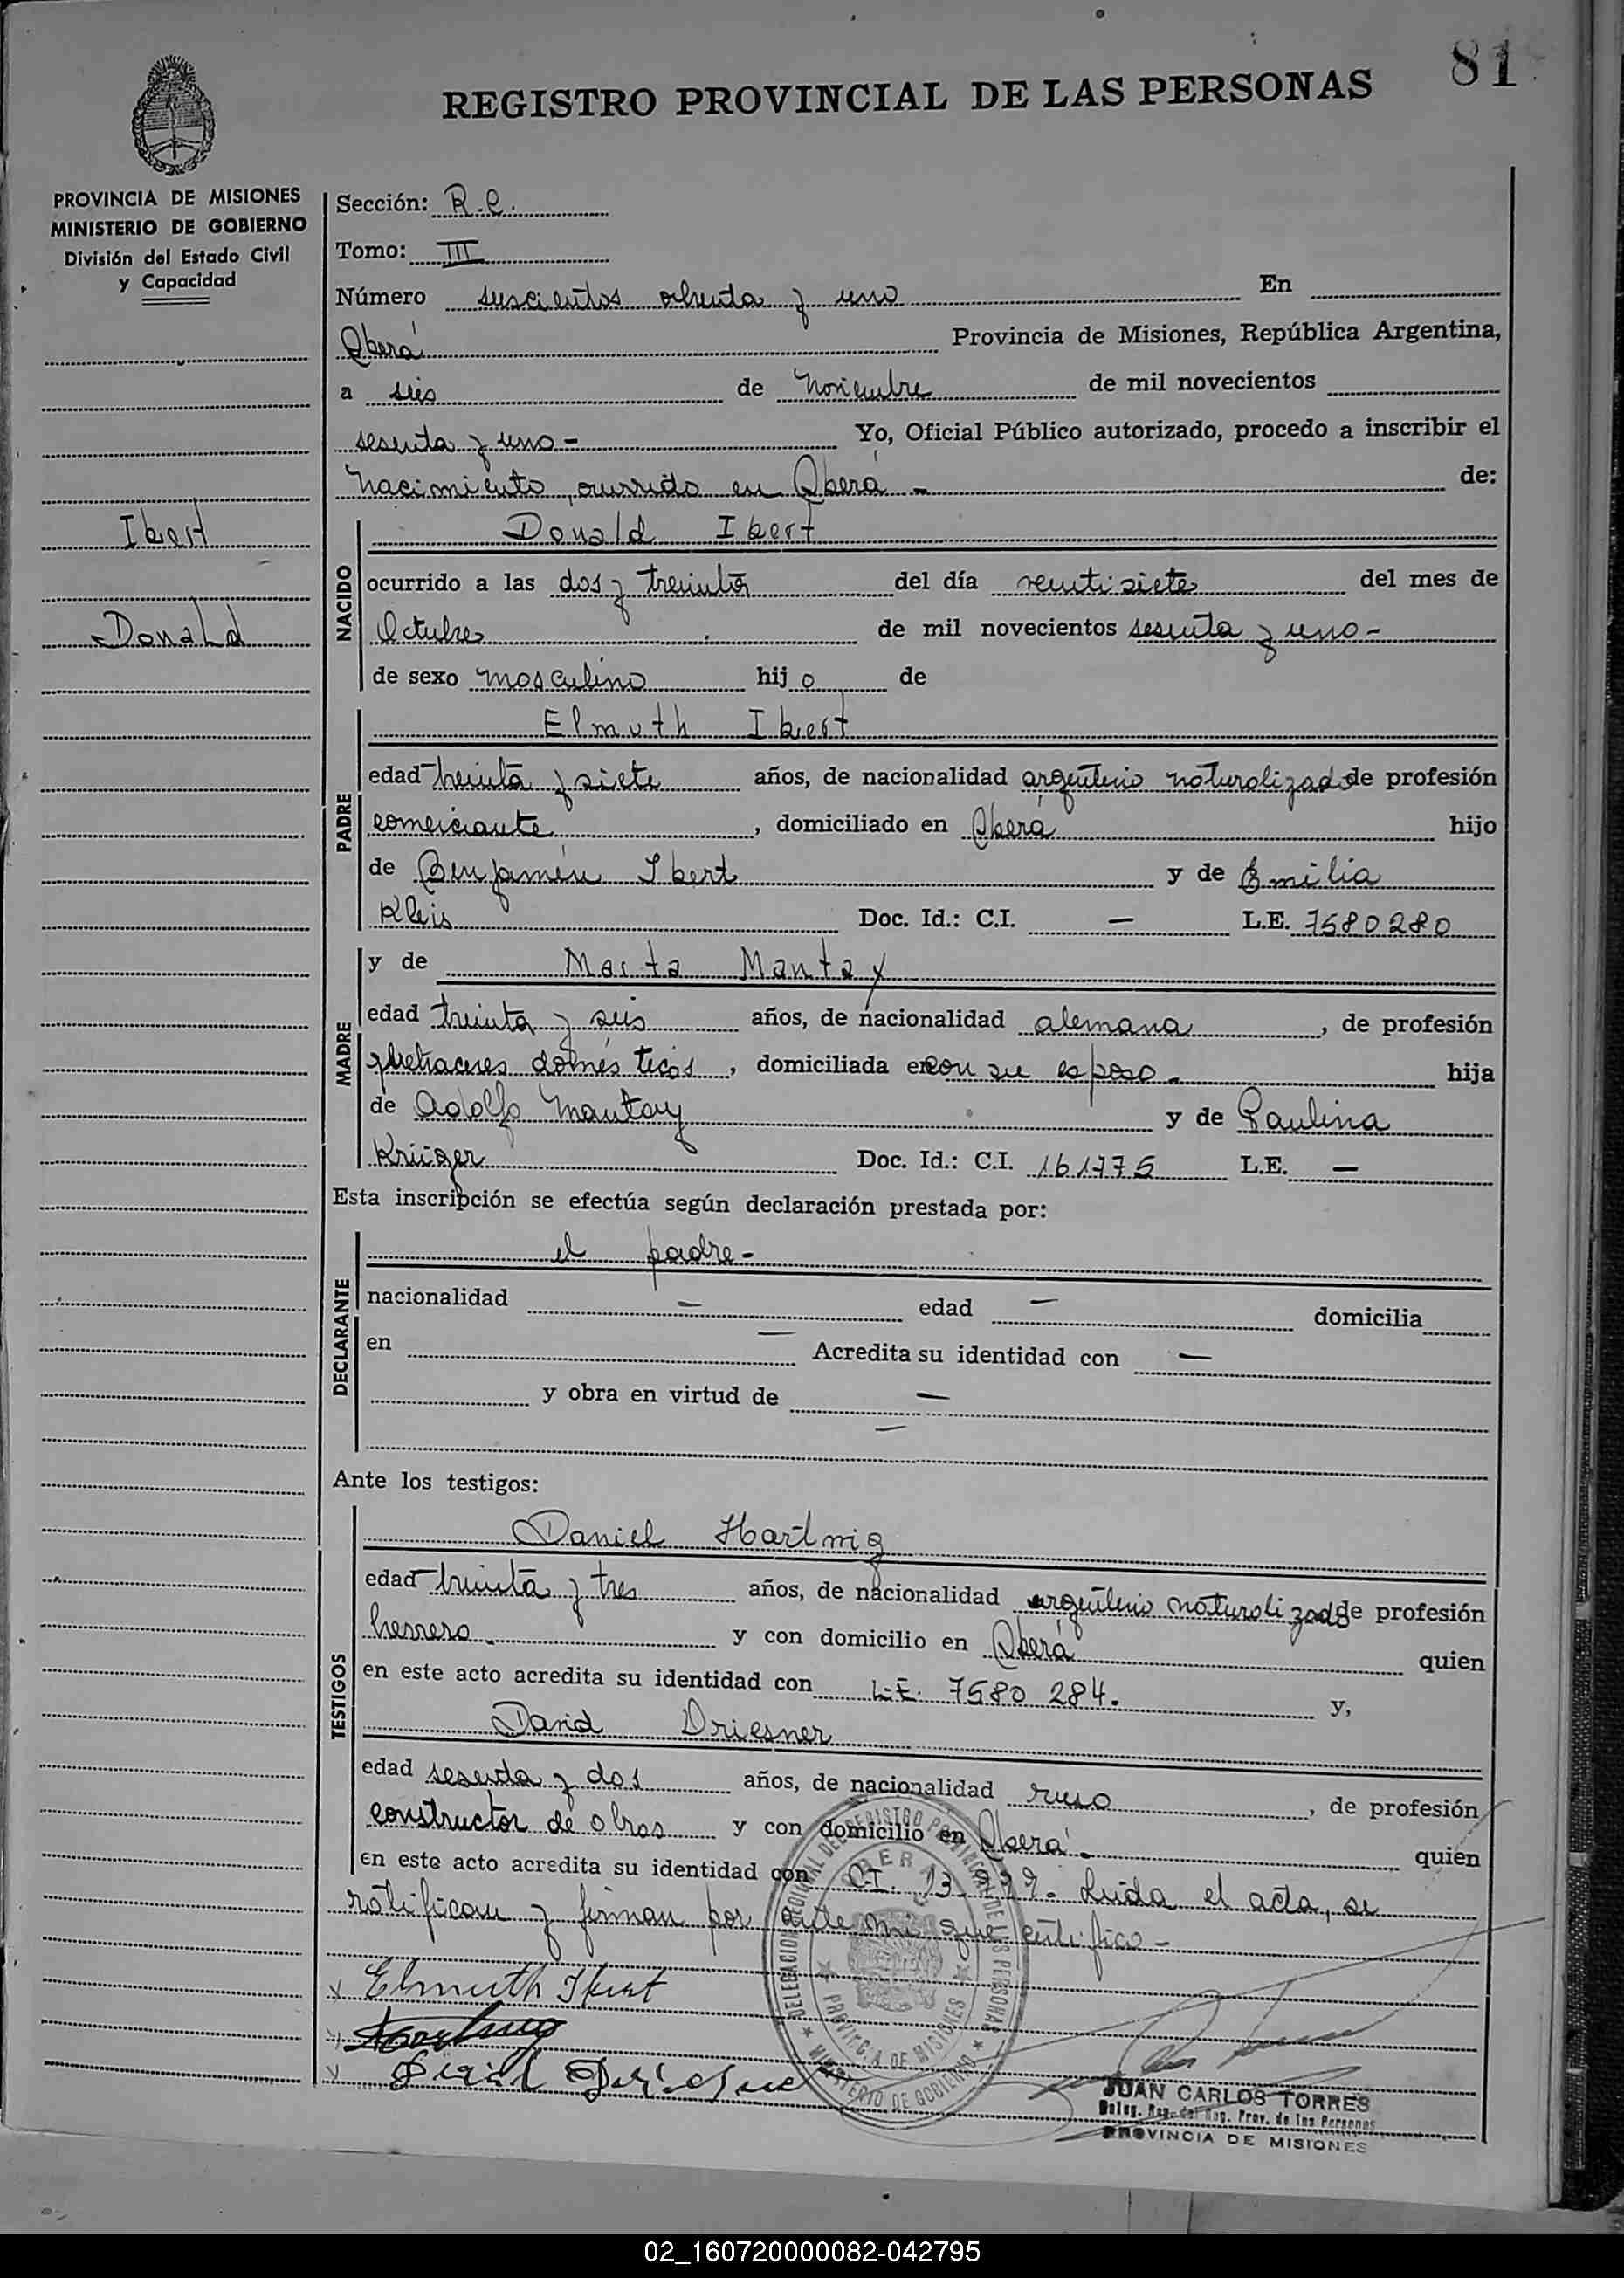 81
REGISTRO PROVINCIAL DE LAS PERSONAS
PROVINCIA DE MISIONES
MINISTERIO DE GOBIERNO
División del Estado Civil
y Capacidad
Ibert
Donald
Sección: R.C.
Tomo: III
Número seiscientos ochenta y uno En
Oberá Provincia de Misiones, República Argentina,
a seis de Noviembre de mil novecientos
sesenta y uno - Yo, Oficial Público autorizado, procedo a inscribir el
nacimiento, ocurrido en Oberá - de:
NACIDO
Donald Ibert
ocurrido a las dos y treinta del día veintisiete del mes de
Octubre de mil novecientos sesenta y uno -
de sexo masculino hijo de
PADRE
Elmuth Ibert
edad treinta y siete años, de nacionalidad argentino naturalizado de profesión
comerciante, domiciliado en Oberá hijo
de Benjamín Ibert y de Emilia
Kleis Doc. Id.: C.I. — L.E. 7580280
MADRE
y de Marta Mantay
edad treinta y seis años, de nacionalidad alemana, de profesión
quehaceres domésticos, domiciliada en con su esposo - hija
de Adolfo Mantay y de Paulina
Krüger Doc. Id.: C.I. 161775 L.E. —
Esta inscripción se efectúa según declaración prestada por:
DECLARANTE
el padre -
nacionalidad — edad — domicilia
en — Acredita su identidad con —
y obra en virtud de —
—
Ante los testigos:
TESTIGOS
Daniel Hartwig
edad treinta y tres años, de nacionalidad argentino naturalizado de profesión
herrero - y con domicilio en Oberá quien
en este acto acredita su identidad con L.E. 7580 284. y,
David Driesner
edad sesenta y dos años, de nacionalidad ruso, de profesión
constructor de obras y con domicilio en Oberá - quien
en este acto acredita su identidad con C.I. Leída el acta, se
ratifican y firman por ante mí que certifico -
x Elmuth Ibert
DELEGACION REGIONAL DEL REGISTRO PROVINCIAL DE LAS PERSONAS
OBERA
PROVINCIA DE MISIONES
MINISTERIO DE GOBIERNO
JUAN CARLOS TORRES
Deleg. Reg. del Reg. Prov. de las Personas
PROVINCIA DE MISIONES
02_160720000082-042795